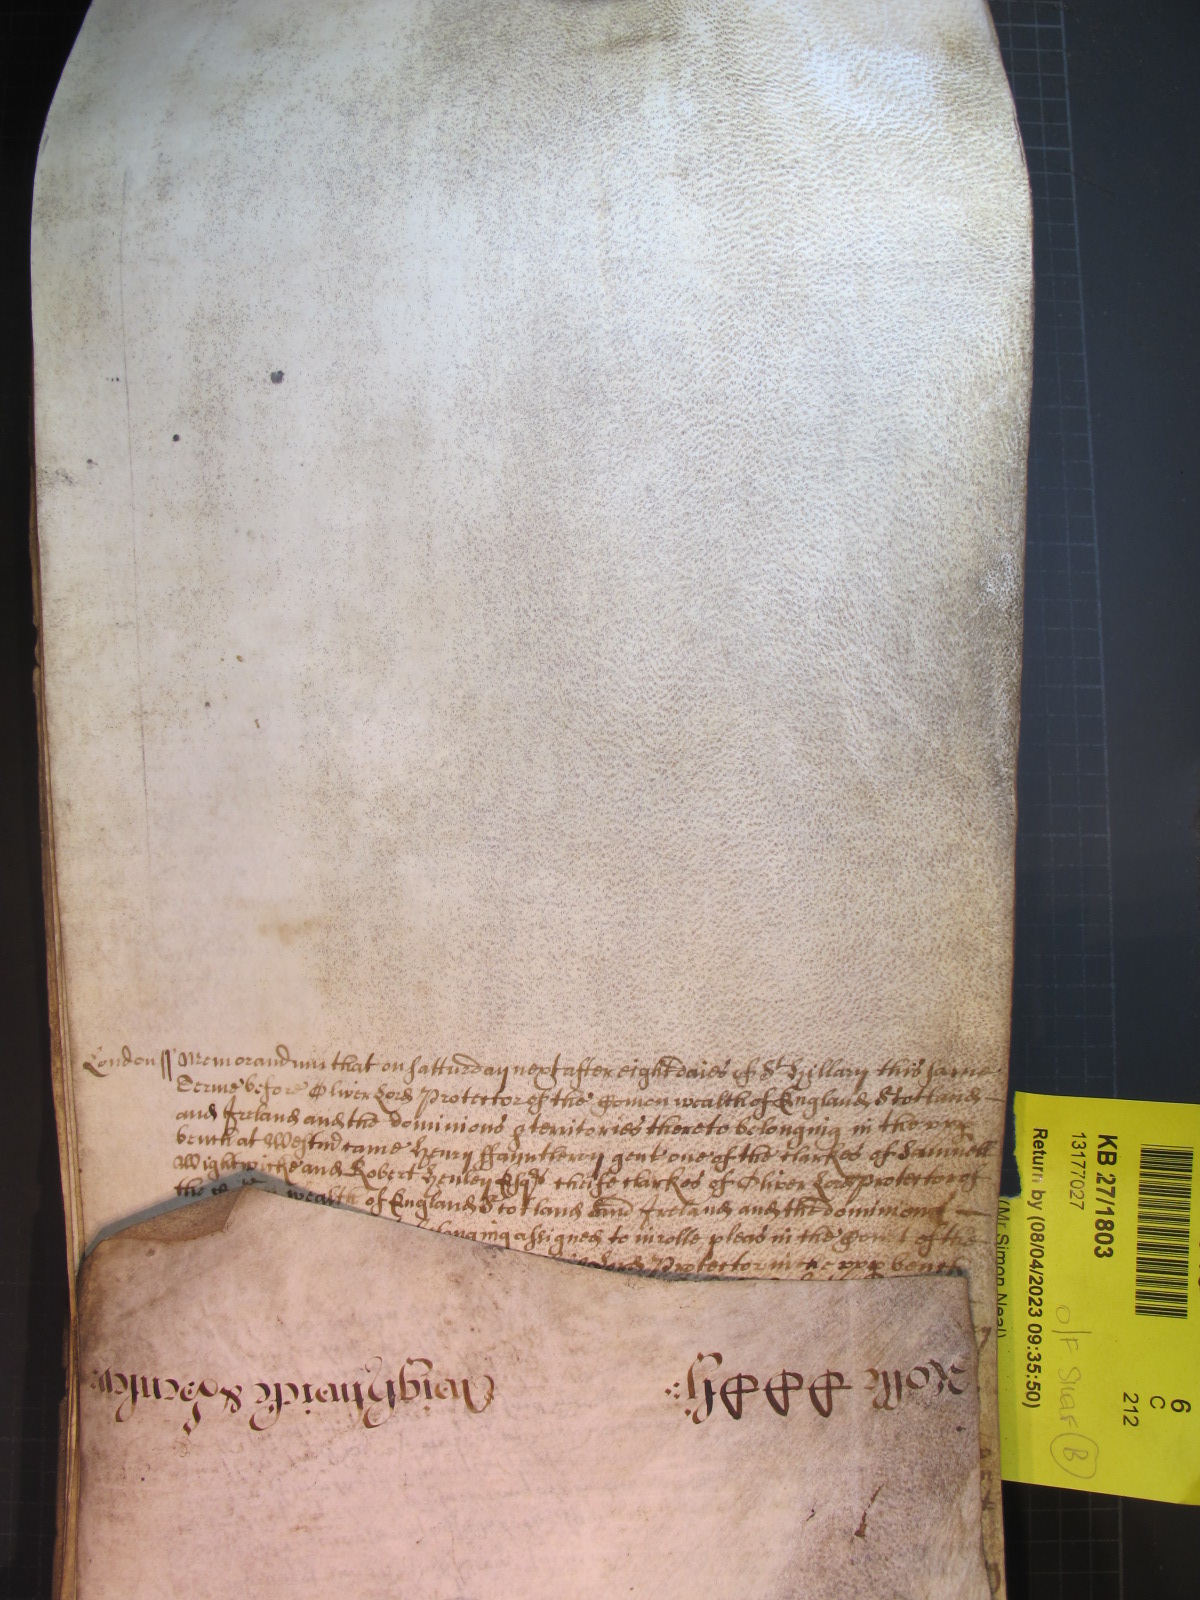 London // Memorandum that on satturday next after eight daies of St Hillary this same
Terme before Oliver Lord Protector of the Comon wealth of England Scotland
and Ireland and the dominions & territories thereto belonging in the vpp
bench at Westmr came Henry ffauntleroy gent one of the clarkes of Samuell
Wightwicke and Robert Henley Esqrs cheife clarkes of Oliver Lord protector of
the wealth of England Scotland and Ireland and the dominions
longing assigned to inrolle pleas in the Court of the
Lord Protector in the vpp bench
Wightwicke & Henley
Rolle
KB 27/1803
13177027
Return by (08/04/2023 09:35:50)
(Mr Simon Neal)
6
C
212
O/F
B